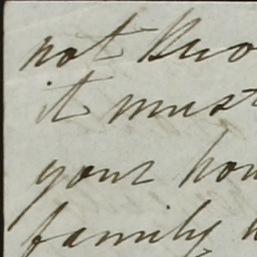 not kno
it must
your hou
family